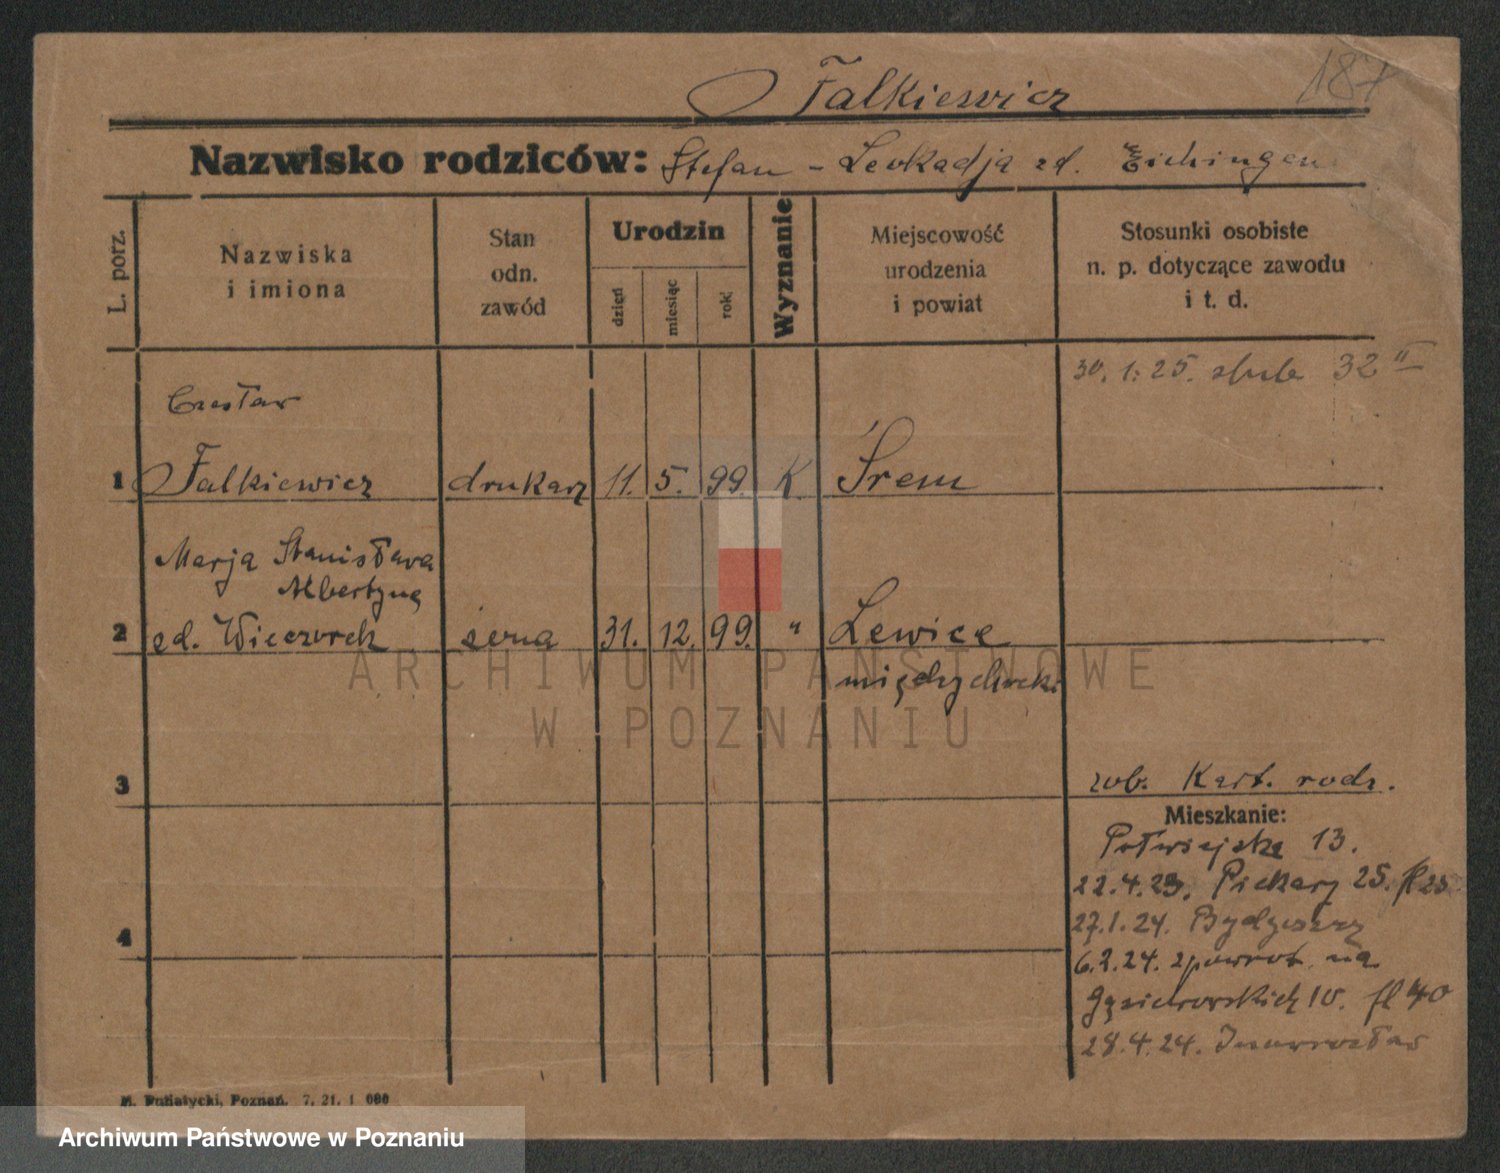 Falkiewicz
187
Nazwisko rodziców: Stefan - Leokadja zd. Eichinger
L. porz.
Nazwiska
i imiona
Stan
odn.
zawód
Urodzin
dzień
miesiąc
rok
Wyznanie
Miejscowość
urodzenia
i powiat
Stosunki osobiste
n. p. dotyczące zawodu
i t. d.
30. 1. 25. ślub 32 II
Czesław
1 Falkiewicz drukarz 11. 5. 99. K Śrem
Marja Stanisława
Albertyna
2 zd. Wieczorek żona 31. 12. 99. " Lewice
międzychodzki
ARCHIWUM PAŃSTWOWE
W POZNANIU
3
zob. Kart. rodz.
Mieszkanie:
Półwiejska 13.
22.4.23. Piekary 25.
4
27.1.24. Bydgoszcz
6.2.24. zpowrot na
Gąsiorowskich 10. fl 40
28.4.24. Inowrocław
M. Putiatycki, Poznań. 7. 21. 1 000
Archiwum Państwowe w Poznaniu